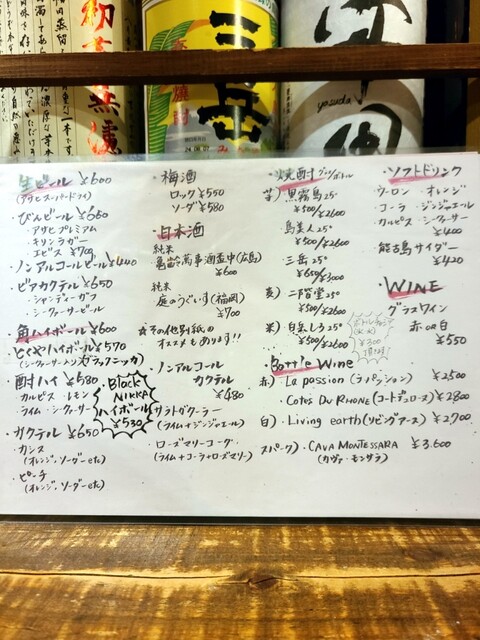 三岳
yasuda
・生ビール ¥600
(アサヒスーパードライ)
・びんビール ¥660
・アサヒプレミアム
・キリンラガー
・エビス ¥700
・ノンアルコールビール ¥440
・ビアカクテル ¥650
・シャンディーガフ
・シークァーサービール
・角ハイボール ¥600
・とくやハイボール ¥570
・酎ハイ ¥580
カルピス・レモン
ライム・シークァーサー
Black
NIKKA
ハイボール
¥530
・カクテル ¥650
・カシス
(オレンジ、ソーダーetc)
・ピーチ
(オレンジ、ソーダーetc)
・梅酒
・ロック ¥550
・ソーダ ¥580
・日本酒
純米
亀齢萬事酒盃中(広島)
¥600
純米
庭のうぐいす(福岡)
¥700
☆その他別紙の
オススメもあります!!
・ノンアルコール
カクテル
¥480
サラトガクーラー
(ライム+ジンジャエール)
・ローズマリーコーク
(ライム+コーラ+ローズマリー)
・焼酎 グラス/ボトル
芋)黒霧島25°
¥500/¥2600
島美人25°
¥500/¥2600
三岳25°
¥650/¥3000
麦)二階堂25°
¥500/¥2600
米)白岳しろ25°
¥500/¥2600
・Bottle Wine
赤)・La passion (ラパッション) ¥2500
・Cotes Du RHONE (コートデュローヌ) ¥2800
白)・Living earth (リビングアース) ¥2700
スパーク)・CAVA MONTESSARA ¥3,600
(カヴァ・モンサラ)
・ソフトドリンク
・ウーロン・オレンジ
・コーラ・ジンジャエール
・カルピス・シークァーサー
¥400
・能古島サイダー
¥420
・WINE
グラスワイン
赤or白
¥550